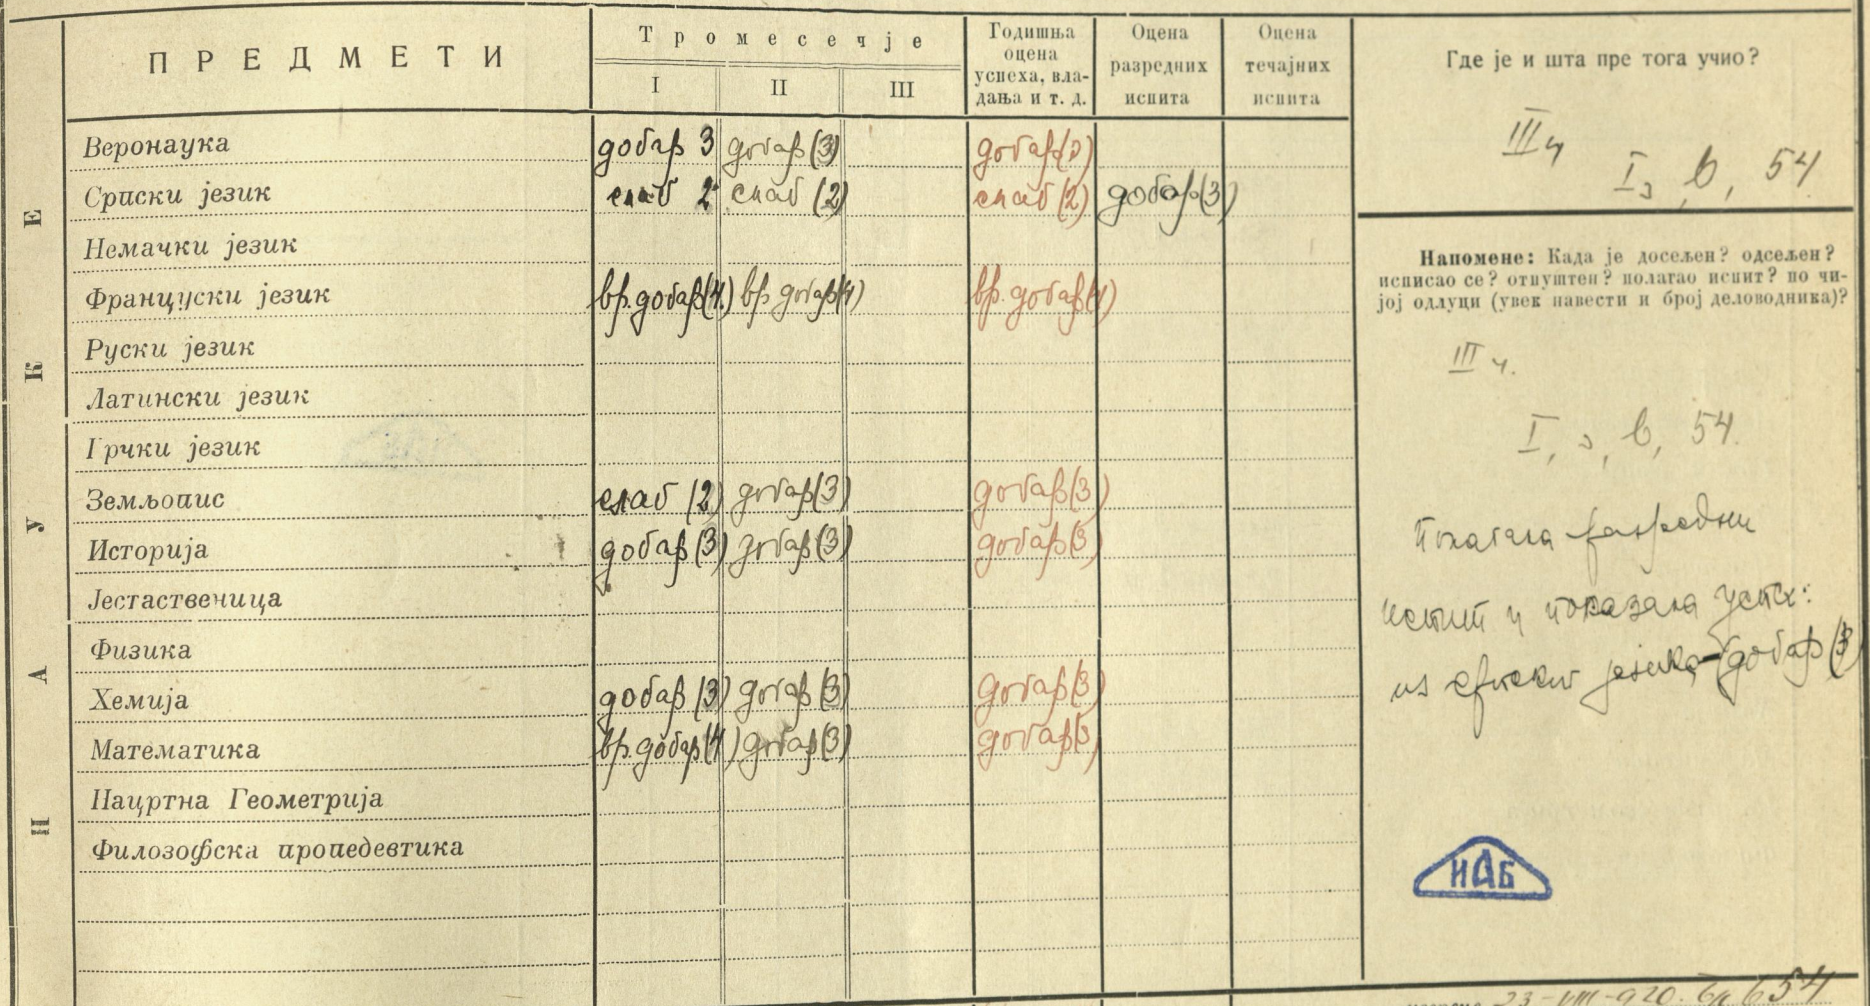 ПРЕДМЕТИ
Тромесечје
I II III
Годишња оцена успеха, вла-дања и т. д.
Оцена разредних испита
Оцена течајних испита
НАУКЕ
Веронаука добар 3 добар (3) добар (3)
Српски језик слаб 2 слаб (2) слаб (2) добар (3)
Немачки језик
Француски језик вр. добар (4) вр. добар (4) вр. добар (4)
Руски језик
Латински језик
Грчки језик
Земљопис слаб (2) добар (3) добар (3)
Историја добар (3) добар (3) добар (3)
Јестаственица
Физика
Хемија добар (3) добар (3) добар (3)
Математика вр. добар (4) добар (3) добар (3)
Нацртна Геометрија
Филозофска пропедевтика
Где је и шта пре тога учио?
III ч
I, в, 54
Напомене: Када је досељен? одсељен?
исписао се? отпуштен? полагао испит? по чи-
јој одлуци (увек навести и број деловодника)?
III ч.
I, в, 54.
Полагала разредни
испит и показала успех:
из српског језика - добар (3)
ИАБ
23-VIII-920. 654